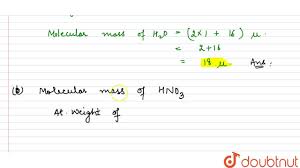 Molecular mass of H2O = (2×1 + 16) u.
= 2+16
= 18 u. Ans.
(b) Molecular mass of HNO3
At. Weight of
doubtnut